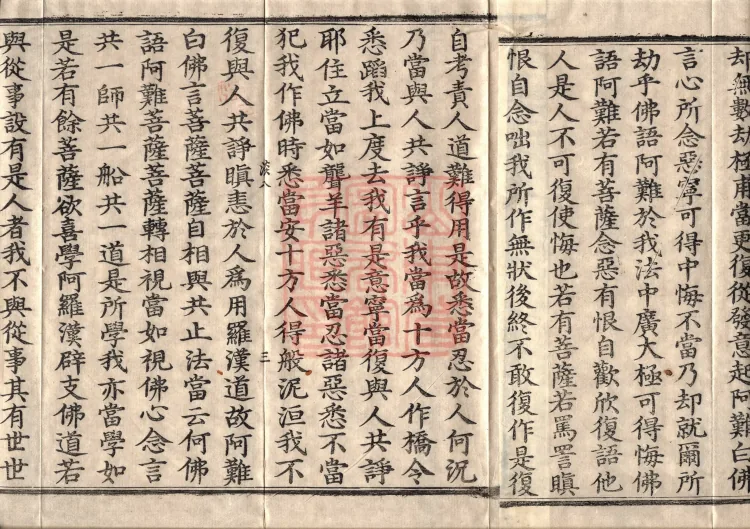 却無數劫極甫當更復從發意起阿難白佛
言心所念惡寧可得中悔不當乃却就爾所
劫乎佛語阿難於我法中廣大極可得悔佛
語阿難若有菩薩念惡有恨自歡欣復語他
人是人不可復使悔也若有菩薩若罵詈瞋
恨自念咄我所作無狀後終不敢復作是復
自考責人道難得用是故悉當忍於人何況
乃當與人共諍言乎我當為十方人作橋令
悉蹈我上度去我有是意寧當復與人共諍
耶住立當如聾羊諸惡悉當忍諸惡悉不當
犯我作佛時悉當安十方人得般泥洹我不
三
復與人共諍瞋恚於人為用羅漢道故阿難
白佛言菩薩菩薩自相與共止法當云何佛
語阿難菩薩菩薩轉相視當如視佛心念言
共一師共一船共一道是所學我亦當學如
是若有餘菩薩欲喜學阿羅漢辟支佛道若
與從事設有是人者我不與從事其有世世